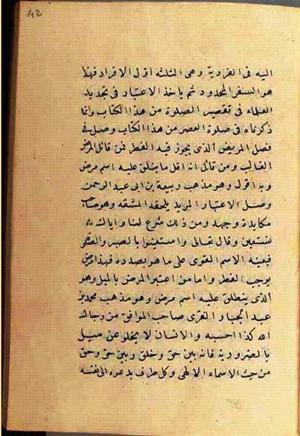 ٤٢
اليه فى الفردية وهى الثلثه اقول الافراد فهذا
هو السفر المحدود ثم ياخذ الاعتبار فى تحديد
العلماء فى تقصير الصلوة من هذا الكتاب وانما
ذكرناه فى صلوة العصر من هذا الكتاب وصل فى
فصل المريض الذى يجوز فيه الفطر فمن قائل المرض
الغالب ومن قائل انه اقل ما ينطلق عليه اسم مرض
وبه اقول وهو مذهب ربيعة بن ابى عبد الرحمن
وصل الاعتبار المريد يلحقه المشقه وهو صاحب
مكابدة وجهد ومن ذلك شرع لنا واياك
نستعين وقال تعالى واستعينوا بالصبر والصلوة
فيعينه الاسم القوى على ما هو بصدده فهذا مرض
يوجب الفطر واما من اعتبر المرض بالميل وهو
الذى ينطلق عليه اسم مرض وهو مذهب محمد بن
عبد الجبار النفرى صاحب المواقف من رجال
الله كذا احسبه والانسان لا يخلو عن ميل
بالضرورة فانه بين حق وخلق وبين حق وحق
من حيث الاسماء الالهى وكل طرف يدعوه الى نفسه